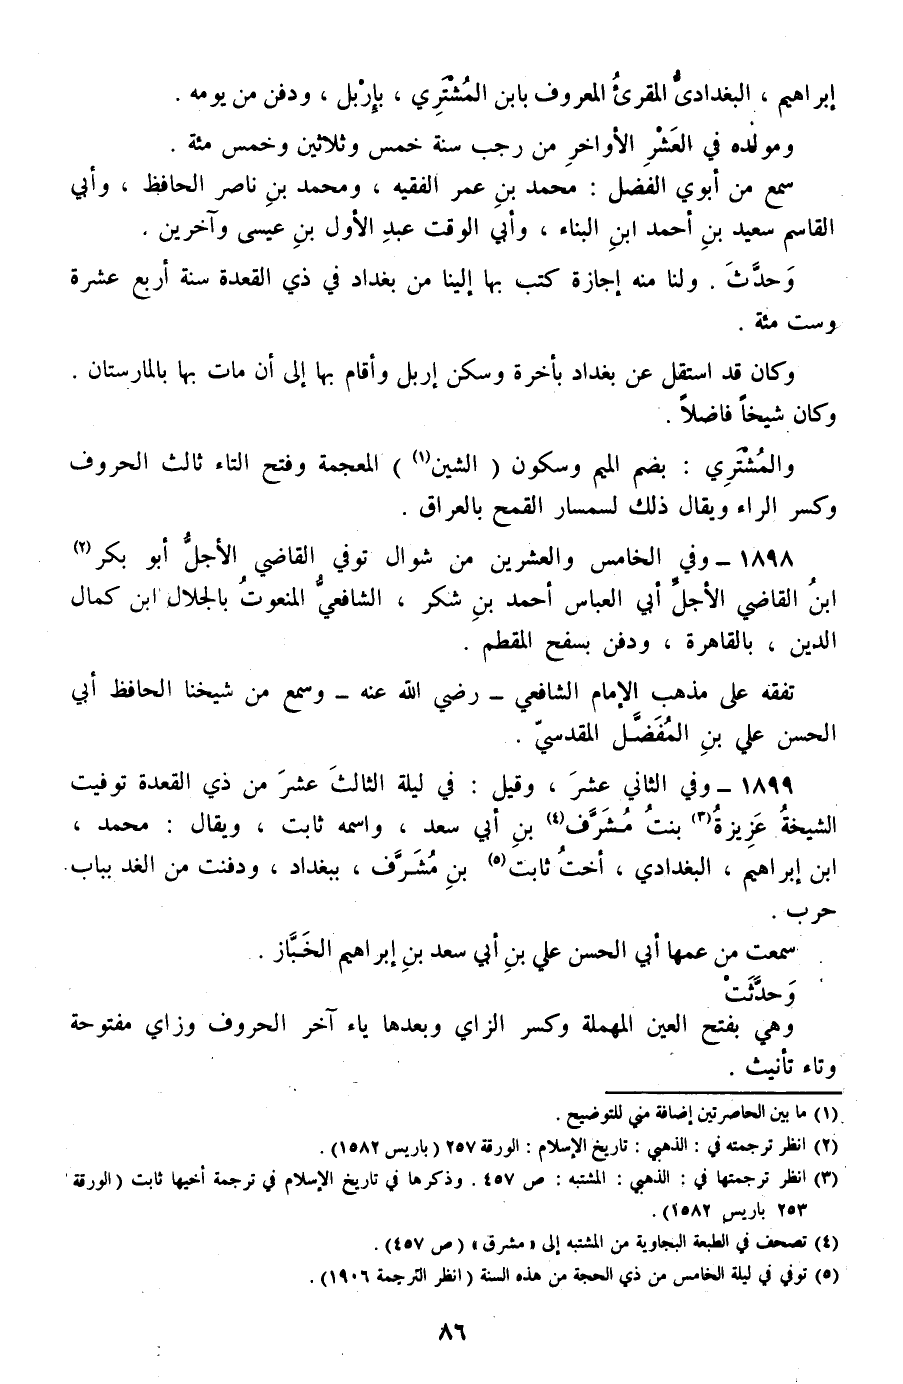 إبراهيم ، البغداديُّ المقرئُ المعروف بابن المُشْتَرِي ، بإِرْبل ، ودفن من يومه .
ومولده في العَشْرِ الأواخرِ من رجب سنة خمس وثلاثين وخمس مئة .
سمع من أبوي الفضل : محمد بنِ عمر الفقيه ، ومحمد بنِ ناصر الحافظ ، وأبي
القاسم سعيد بنِ أحمد ابنِ البناء ، وأبي الوقت عبدِ الأول بنِ عيسى وآخرين .
وَحدَّثَ . ولنا منه إجازة كتب بها إلينا من بغداد في ذي القعدة سنة أربع عشرة
وست مئة .
وكان قد استقل عن بغداد بأخرة وسكن إربل وأقام بها إلى أن مات بها بالمارستان .
وكان شيخاً فاضلاً .
والمُشْتَرِي : بضم الميم وسكون ( الشين(١) ) المعجمة وفتح التاء ثالث الحروف
وكسر الراء ويقال ذلك لسمسار القمح بالعراق .
١٨٩٨ ــ وفي الخامس والعشرين من شوال توفي القاضي الأجلُّ أبو بكر(٢)
ابنُ القاضي الأجلِّ أبي العباس أحمد بنِ شكر ، الشافعيُّ المنعوتُ بالجلال ابن كمال
الدين ، بالقاهرة ، ودفن بسفح المقطم .
تفقه على مذهب الإمام الشافعي ــ رضي الله عنه ــ وسمع من شيخنا الحافظ أبي
الحسن علي بنِ المُفَضَّل المقدسيّ .
١٨٩٩ ــ وفي الثاني عشرَ ، وقيل : في ليلة الثالثَ عشرَ من ذي القعدة توفيت
الشيخةُ عَزِيزةُ(٣) بنتُ مُشَرَّف(٤) بنِ أبي سعد ، واسمه ثابت ، ويقال : محمد ،
ابن إبراهيم ، البغدادي ، أختُ ثابت(٥) بنِ مُشَرَّف ، ببغداد ، ودفنت من الغد بباب
حرب .
سمعت من عمها أبي الحسن علي بنِ أبي سعد بنِ إبراهيم الخَبَّاز .
وَحدَّثَتْ
وهي بفتح العين المهملة وكسر الزاي وبعدها ياء آخر الحروف وزاي مفتوحة
وتاء تأنيث .
(١) ما بين الحاصرتين إضافة مني للتوضيح .
(٢) انظر ترجمته في : الذهبي : تاريخ الإسلام : الورقة ٢٥٧ ( باريس ١٥٨٢) .
(٣) انظر ترجمتها في : الذهبي : المشتبه : ص ٤٥٧ . وذكرها في تاريخ الإسلام في ترجمة أخيها ثابت ( الورقة
٢٥٣ باريس ١٥٨٢) .
(٤) تصحف في الطبعة البجاوية من المشتبه إلى « مشرق » ( ص ٤٥٧) .
(٥) توفي في ليلة الخامس من ذي الحجة من هذه السنة ( انظر الترجمة ١٩٠٦) .
٨٦